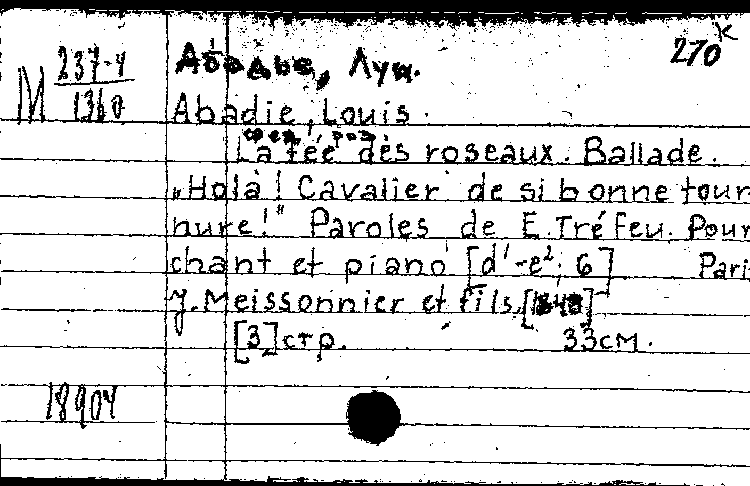 270к
М 237-4
1360
Абадье, Луи.
Abadie, Louis.
La fée des roseaux. Ballade.
„Holà! Cavalier de si bonne tour
nure!" Paroles de E. Tréfeu. Pour
chant et piano [d¹-e²; 6] Pari
J. Meissonnier et fils,
[3] стр. 33см.
18904